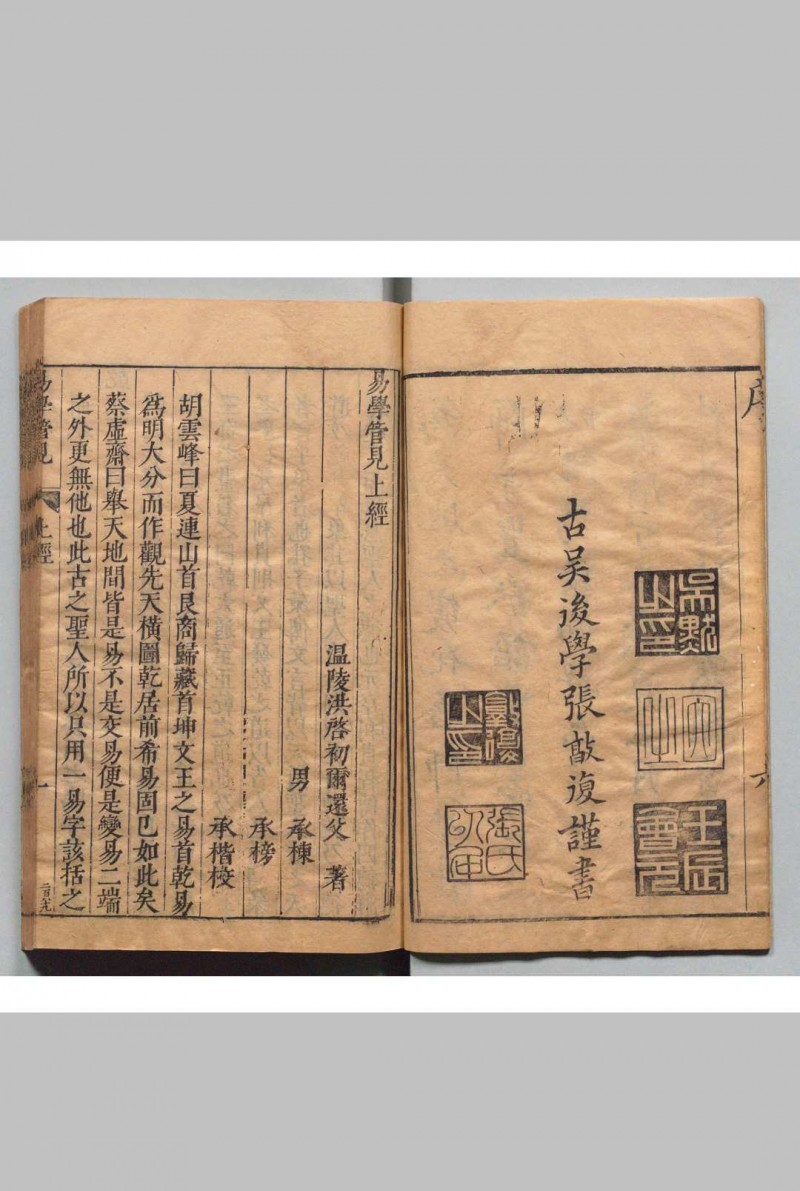 序
古吳後學張敵復謹書
吳默之印
壬辰會元
敵復之印
張氏
易學管見上經
溫陵洪啓初爾還父 著
男 承棟
承榜
承楷校
胡雲峰曰夏連山首艮商歸藏首坤文王之易首乾易
爲明大分而作觀先天橫圖乾居前希易固已如此矣
蔡虛齋曰舉天地間皆是易不是交易便是變易二端
之外更無他也此古之聖人所以只用一易字該括之
易學管見 上經 一